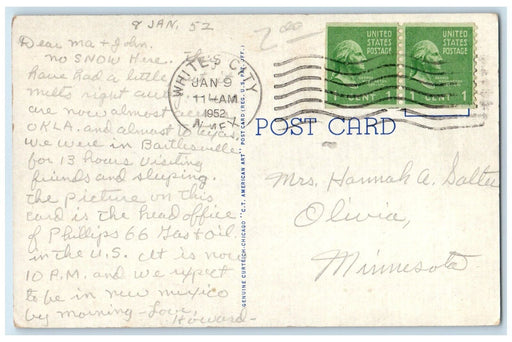 8 JAN. 52
2.00
Dear Ma + John.
no SNOW Here. They
have had a little
melts right away
are now almost
OKLA. and almost to Texas.
we were in Bartlesville
for 13 hours visiting
friends and sleeping.
the picture on this
card is the head office
of Phillips 66 Gas + Oil.
in the U.S. it is now
10 P.M. and we expect
to be in new mexico
by morning - Love,
Howard -
WHITES CITY
JAN 9
11-AM
1952
N. MEX.
UNITED STATES POSTAGE
1 CENT 1
UNITED STATES POSTAGE
1 CENT 1
POST CARD
Mrs. Hannah A. Salter
Olivia,
Minnesota
GENUINE CURTEICH-CHICAGO "C.T. AMERICAN ART" POST CARD (REG. U.S. PAT. OFF.)